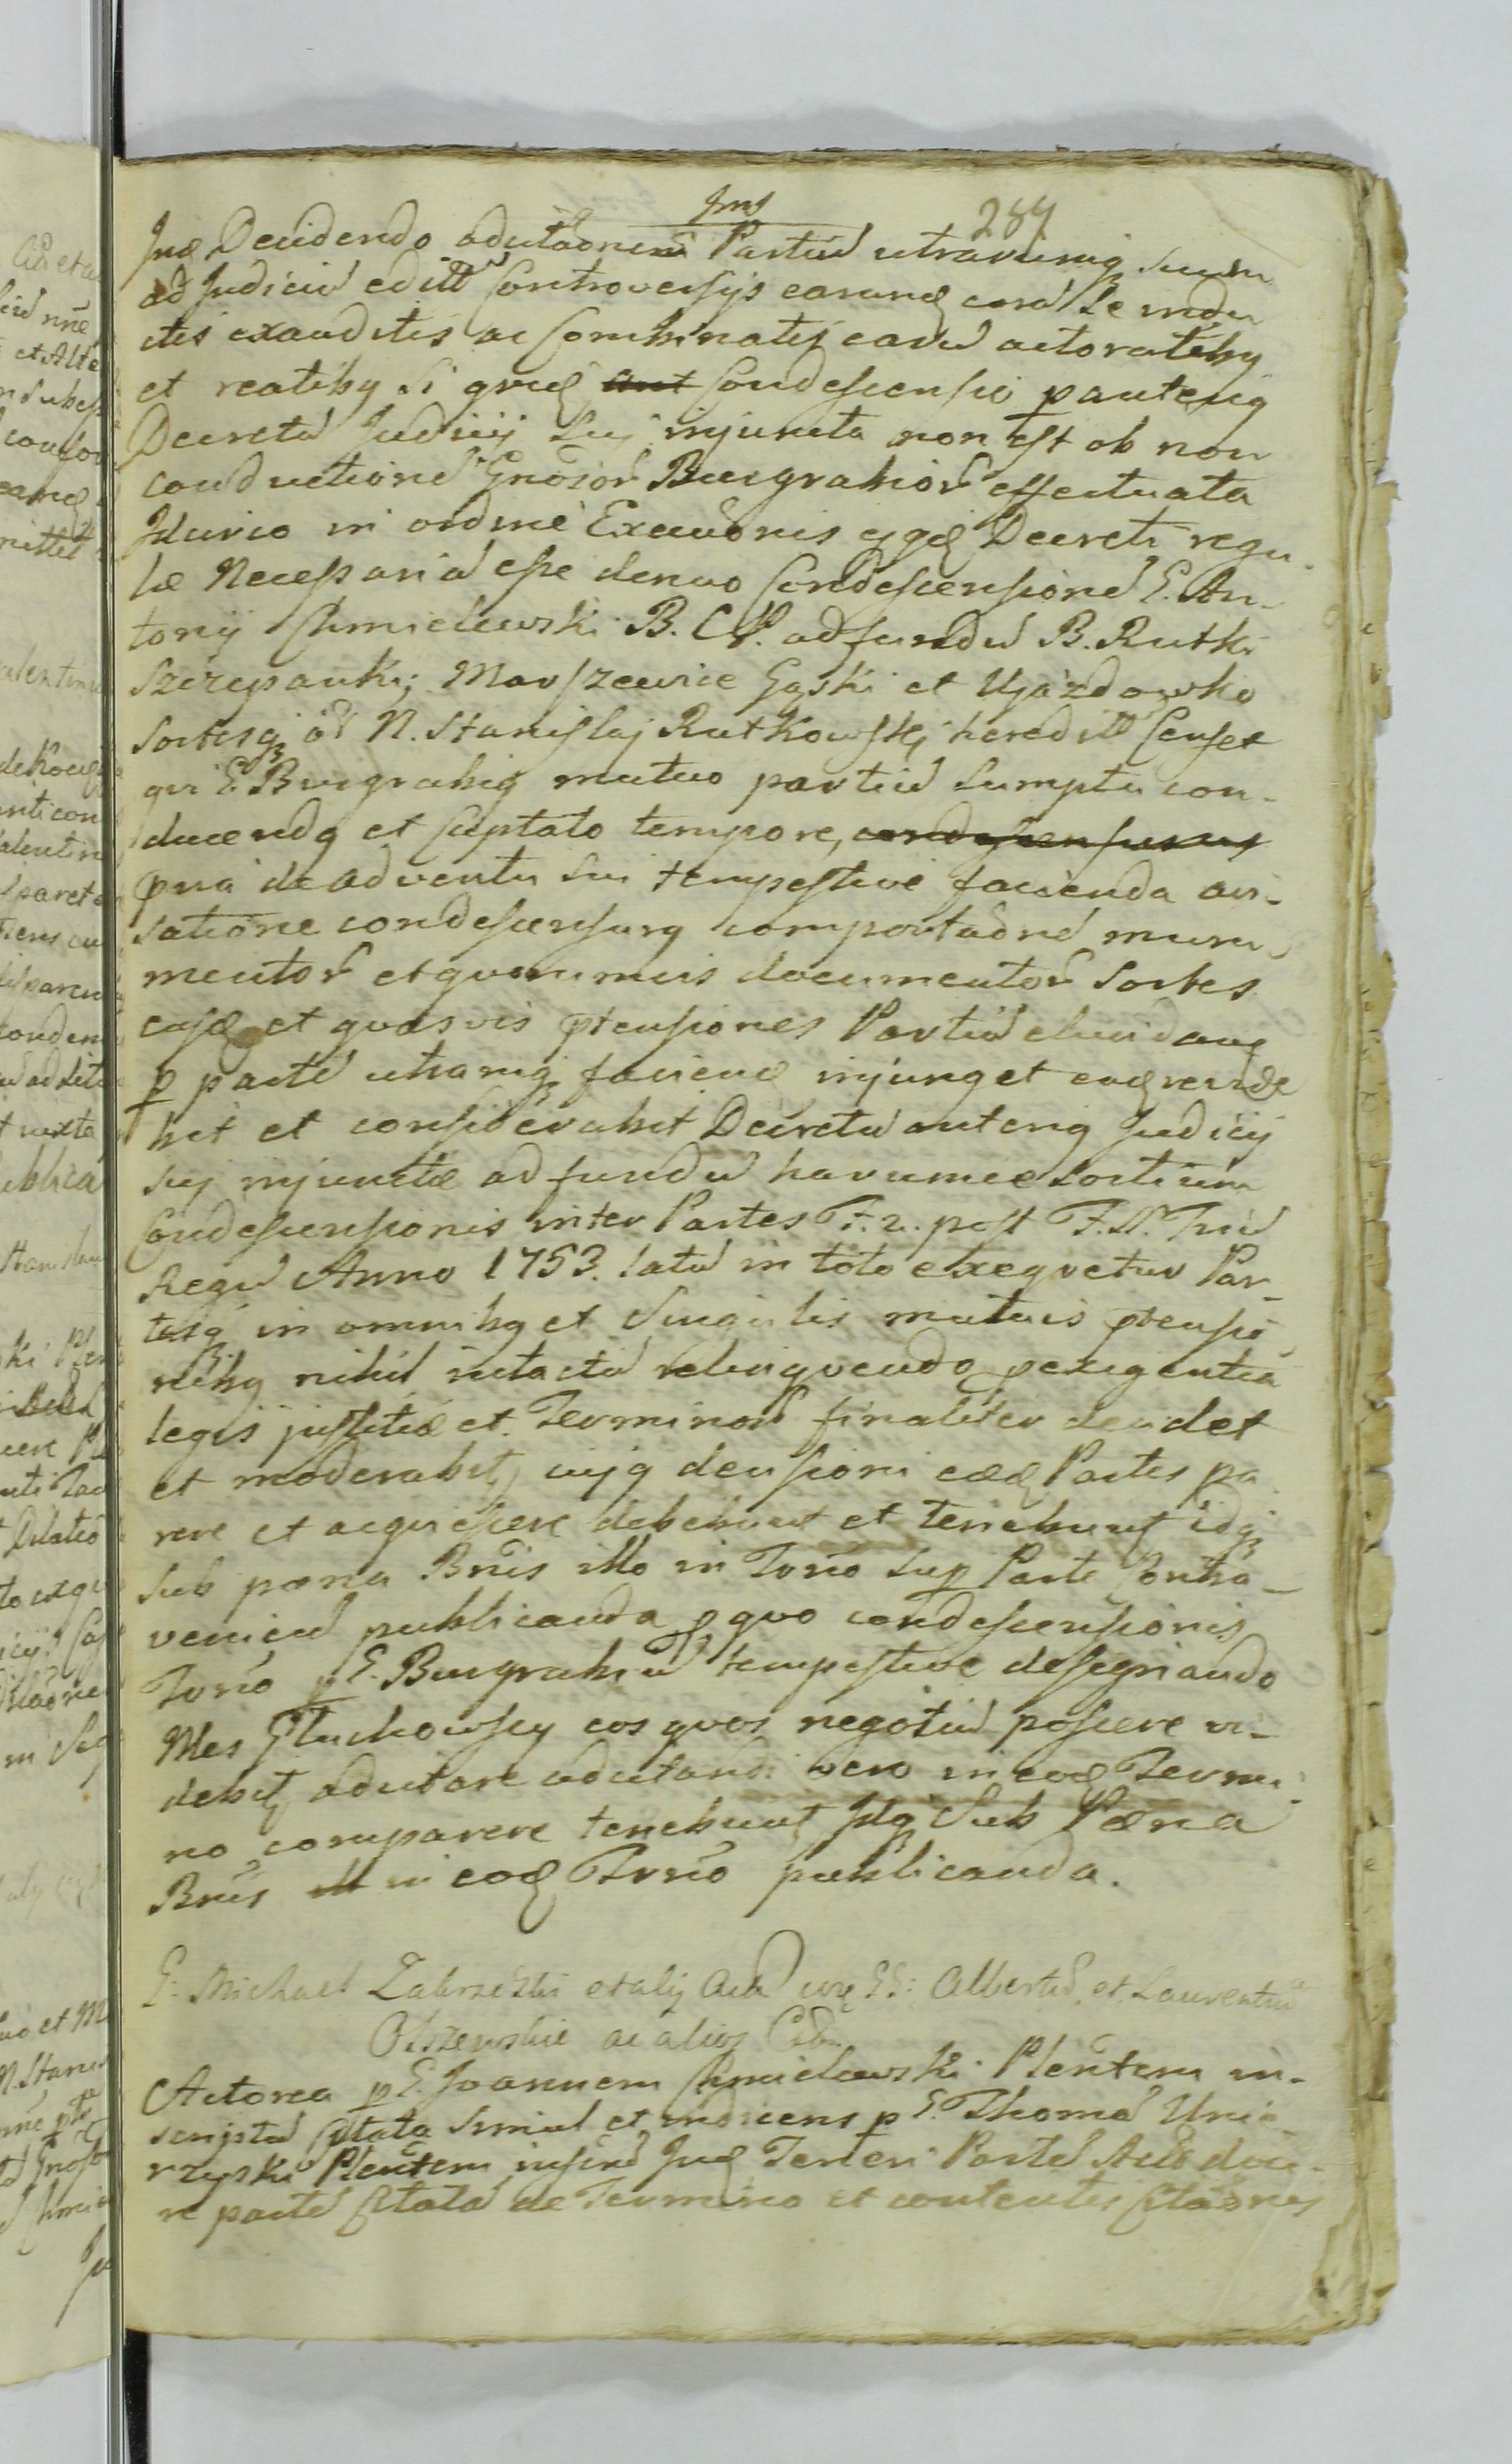 Jms
284
Jnd Decidendo adcitaonem Partiu utrarumq suum
ad Judiciu editt Controversijs earund cora se indu
ctis exauditis ac Combinatis earu actoratibq
et reatibq Si qvid aut Condescensio p anteriq
Decretu Judicij Sui injuncta non est ob non
conductione Gnosor Burgrabior effectuata
Idcirco in ordine Execuonis ejqd Decreti regu-
læ Necessariu esse denuo Condescensione G. An-
tonij Chmielewski B. C. P. ad fundu B. Rutki
Szczepanki; Marszewice Gąski et Ujazdowko
Sortesqz a N. Stanislaj Rutkowskj heredit Censet
qvi G. Burgrabiq mutuo partiu Sumptu con-
ducendq et captato tempore, condescensurus
pria de adventu Sui tempestive facienda avi-
satione condescensurq comportaone muni-
mentor et qvorumvis documentor Sortes
easd et qvasvis ptensiones Partiu elucidand
p parte utramqz faciend injunget ead revide
bit et considerabit Decretu anteriq Judicij
Sui injunctæ ad fundu harumce Sortium
Condescensionis inter Partes F. 2. post F. S. Triu
Regu Anno 1753. latu in toto exeqvetur Par-
tesqz in omnibq et Singulis mutuis ptensio
nibq nihil intactu relinqvendo p exigentia
legis justitiæ et Terminor finaliter decidet
et moderabit, cujq decisioni eæd Partes pa
rere et acqviescere debebunt et tenebunt idqz
Sub poena Bnis illo in Trno Sup Parte Contra-
veniend publicanda p qvo condescensionis
Trno p G. Burgrabiu tempestive designando
Mles Głuchowscy eos qvos negotiu poscere vi-
debit, adcitare adcitandi vero in eod Termi-
no comparere tenebunt Idqz Sub Pæna
Bnis ill in eod Trno publicanda.
G: Michael Zabrzeski et alij Act cotr GG: Albertu et Laurentiu
Olszewskie ac alios Citt
Actorea p G. Joannem Chmielewski Plentem in-
scriptu Citata Simul et indicens p G. Thoma Unie-
rzyski Plentem insert Jud Teneri Parte Act doce-
re parte Citata de Termino et contentis Citaonis